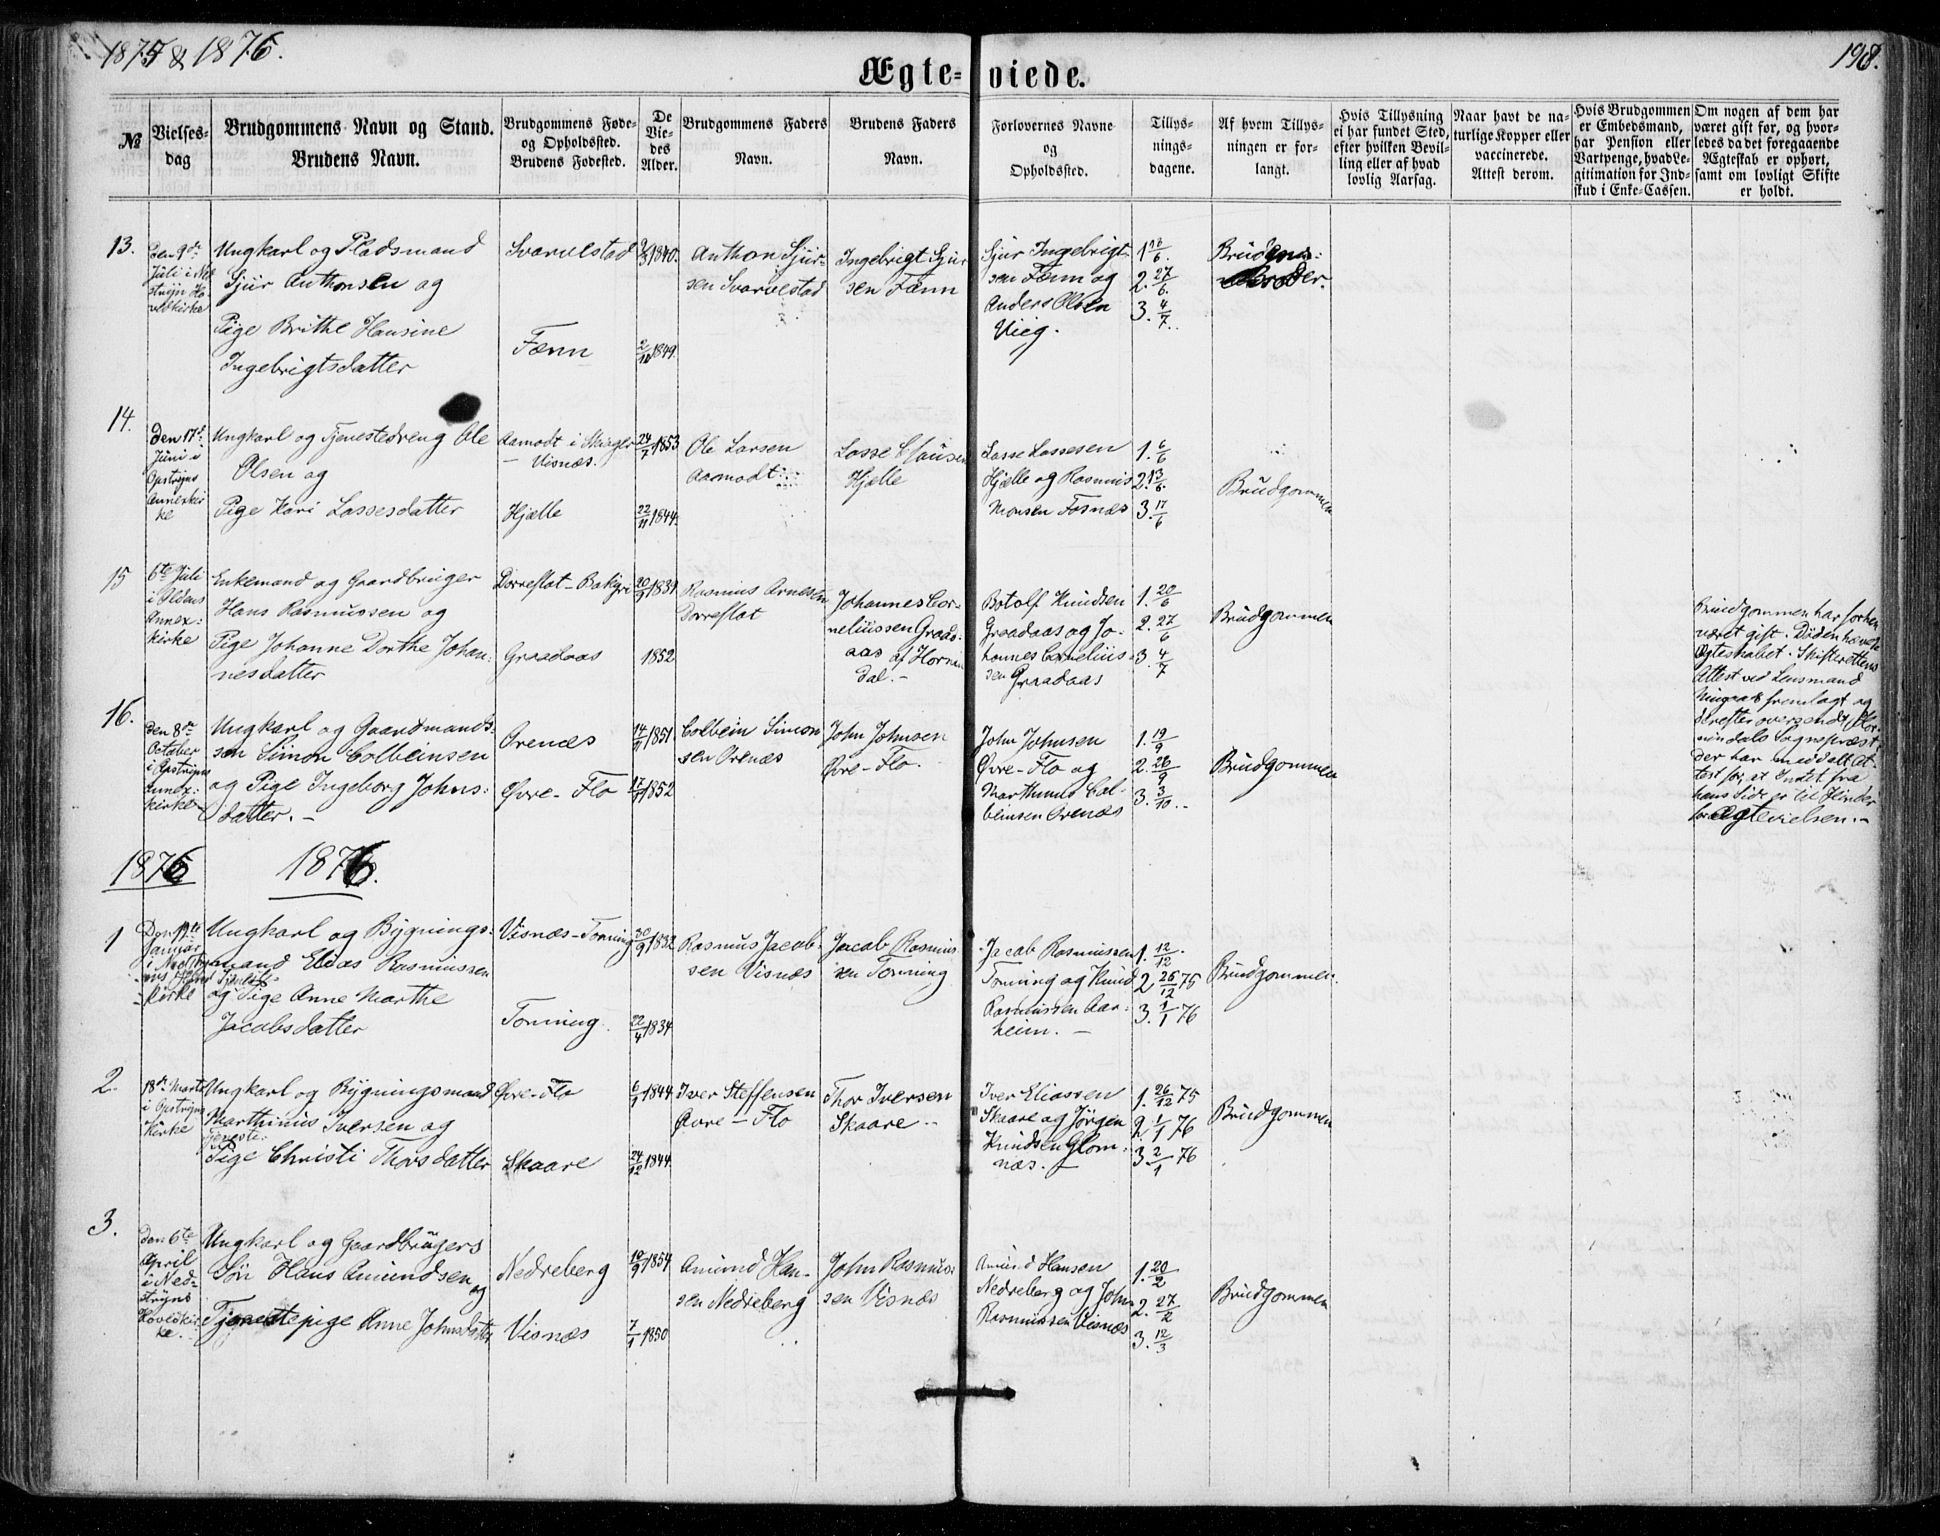 1875 & 1876.
198.
Ægte-viede.
№
Vielses-dag
Brudgommens Navn og Stand.
Brudens Navn.
Brudgommens Føde-
og Opholdssted.
Brudens Fødested.
De
Vie-
des
Alder.
Brudgommens Faders
Navn.
Brudens Faders
Navn.
Forlovernes Navne
og
Opholdssted.
Tillys-
nings-
dagene.
Af hvem Tillys-
ningen er for-
langt.
Hvis Tillysning
ei har fundet Sted,
efter hvilken Bevil-
ling eller af hvad
lovlig Aarsag.
Naar havt de na-
turlige Kopper eller
vaccinerede.
Attest derom.
Hvis Brudgommen
er Embedsmand,
har Pension eller
Vartpenge, hvad Le-
gitimation for Ind-
skud i Enke-Cassen.
Om nogen af dem har
været gift før, og hvor-
ledes da det foregaaende
Ægteskab er ophørt,
samt om lovligt Skifte
er holdt.
13.
Den 9de
Juli i Ned
stryn Ho
vedkirke
Ungkarl og Pladsmand
Sjur Anthonsen og
Pige Brithe Hansine
Ingebrigtsdatter
Svarvestad
Fænn
1840.
2/11 1849.
Anthon Sjur-
sen Svarvestad
Ingebrigt Sjur
sen Fænn
Sjur Ingebrigt-
sen Fænn og
Anders Olsen
Vieg.
1
2. 27/6.
3. 4/7.
Brudens
Broder.
14.
Den 17de
Juni i
Opstryns
Annexkir
ke
Ungkarl og Tjenestedreng Ole
Olsen og
Pige Kari Lassesdatter
Aamodt i
Visnæs.
Hjelle
24/7 1853
22/11 1844.
Ole Larsen
Aamodt
Lasse Clausen
Hjelle
Lasse Lassesen
Hjelle og Rasmus
Monsen Fosnæs
1. 6/6
2. 13/6.
3. 17/6
Brudgommen
15
6te Juli
i Ildens
Annex-
kirke
Enkemand og Gaardbruger
Hans Rasmussen og
Pige Johanne Dorthe Johan-
nesdatter
Dorreflot
Graadaas
1839
1852
Rasmus Arnesen
Dorreflot
Johannes Cor-
neliussen Graad-
aas af Hornin
dal.-
Botolf Knudsen
Graadaas og Jo-
hannes Cornelius
sen Graadaas
1. 20/6
2. 27/6
3 4/7
Brudgommen
Brudgommen har forhen
været gift. Døden hævede
Ægteskabet. Skifterettens
Attest ved Lensmand
fremlagt og
derefter oversendt Hor-
nindals Sognepræst
der har meddelt At-
test for, at Intet fra
hans Side er til Hinder
for Ægtevielsen.-
16.
den 8de
October
i Opstryns
Annex-
kirke
Ungkarl og Gaardmands-
søn Simon Colbeinsen
og Pige Ingeborg Johns-
datter.-
Orenæs
Øvre-Flo
1851
1852
Colbein Simon
sen Orenæs
John Johnsen
Øvre-Flo.
John Johnsen
Øvre-Flo og
Marthinus Col-
beinsen Orenæs
1. 19/9
2. 26/9
3. 3/10.
Brudgommen
1876
1876.
1
Januar
kirke
Ungkarl og Bygnings-
mand Elias Rasmussen
og Pige Anne Marthe
Jacobsdatter
Visnæs-Tonning
Tonning
30/9 1832
22/4 1834
Rasmus Jacob-
sen Visnæs
Jacob Rasmus
sen Tonning
Jacob Rasmussen
Tonning og Knud
Rasmussen Aar-
heim.-
1. 12/12
2 26/12 75
3. 1/1 76
Brudgommen.
2.
18de Marts
i Opstryns
kirke
Ungkarl og Bygningsmand
Marthinus Iversen og
Tjeneste-
Pige Christi Thorsdatter
Øvre-Flo
Skaare
6/1 1844
24/12 1844
Iver Steffensen
Øvre-Flo
Thor Iversen
Skaare
Iver Eliassen
Skaare og Jørgen
Knudsen Glom-
næs.-
1. 26/12 75
2 1/1 76
3. 2/1 76
Brudgommen
3.
den 6te
April
i Ned-
stryns
Hovedkir
ke.
Ungkarl og Gaardbrugers
Søn Hans Amundsen og
Tjenestepige Anne Johnsdatter
Nedreberg
Visnæs
10/9 1854
7/1 1850
Amund Han-
sen Nedreberg
John Rasmus-
sen Visnæs
Amund Hansen
Nedreberg og John
Rasmussen Visnæs
1. 20/2
2. 27/2
3. 12/3
Brudgommen